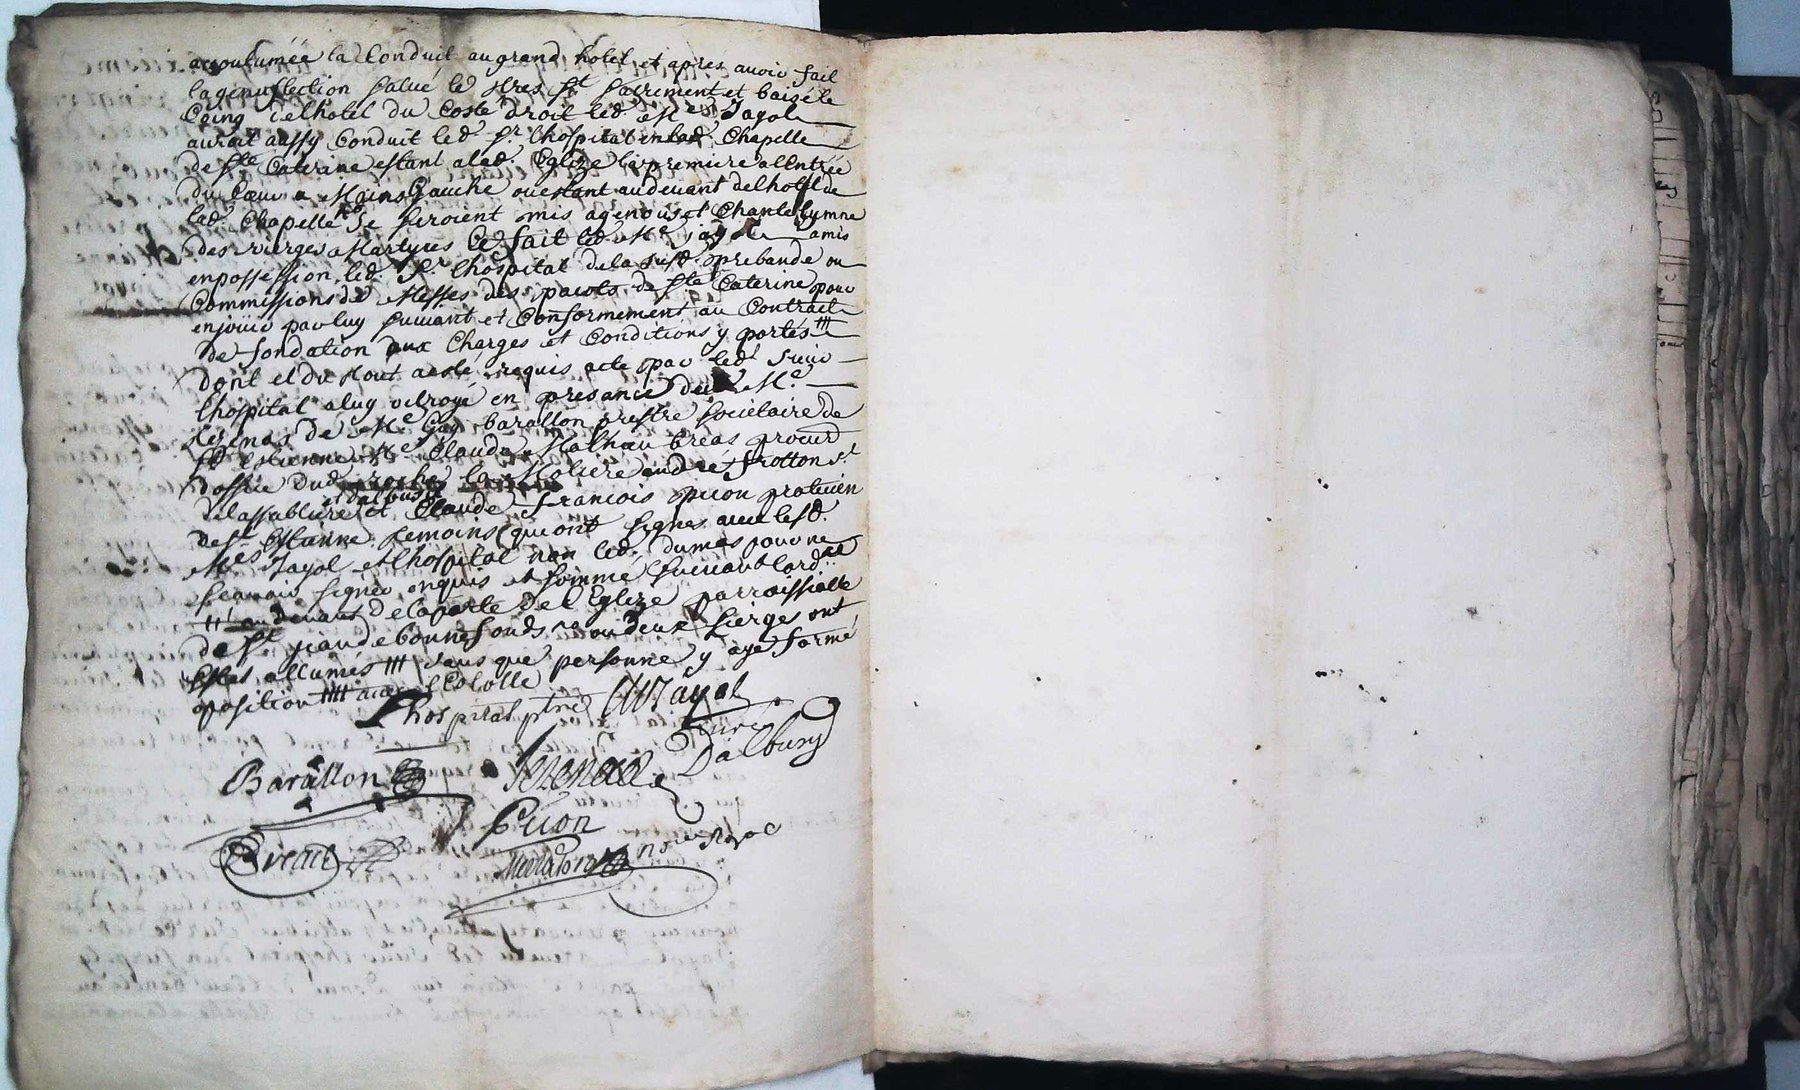 acoutumée la Conduit au grand hotel et apres avoir fait
la genuflection salué le tres st sacrement et baisé le
Coing delhotel du Costé droit led. Me Jayol
auroit aussy Conduit led. sr. lhospital en lad. Chapelle
de ste Caterine estant a lad. Eglize la premiere a lentrée
du Coeur a Mains Gauche ou estant au devant delhotel de
lad. Chapelle se seroient mis agenous et Chanté lymne
des vierges Martyres Ce fait led. Me Jayol a mis
en possession led. Sr. lhospital de la susd. prebande ou
Commissions de Messes des de ste Caterine pour
en jouir par luy suivant et Conformement au Contract
de fondation aux Charges et Conditions y portés
dont et du tout a esté requis acte par led. sieur
lhospital a luy octroyé en presance de Me
de Me Guy barallon prestre societaire de
st Estienne Me Claude Mathieu breas procurr
doffice André frotton sr
delassabliere et dalbusy et Claude francois prion praticien
de st. Estienne temoins qui ont signés avec lesd.
Mes Jayol et lhospital non led. dumas pour ne
scavoir signer enquis et sommé suivant lord.ce
au devant de la porte de l Eglize parroissialle
de st jean de bonnefonds ou deux sierges ont
Estes allumés sans que personne y aye formé
oposition avec lEstolle
lhospital ptre Jayol
curé
Dalbusy
Barallon
Prion
Breact
nore Royal